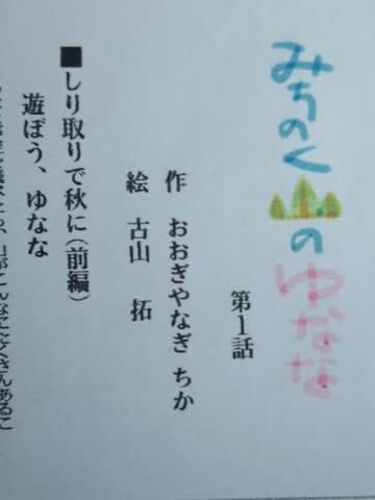 みちのく山のゆなな
第1話
作 おおぎやなぎ ちか
絵 古山 拓
■しり取りで秋に(前編)
遊ぼう、ゆなな